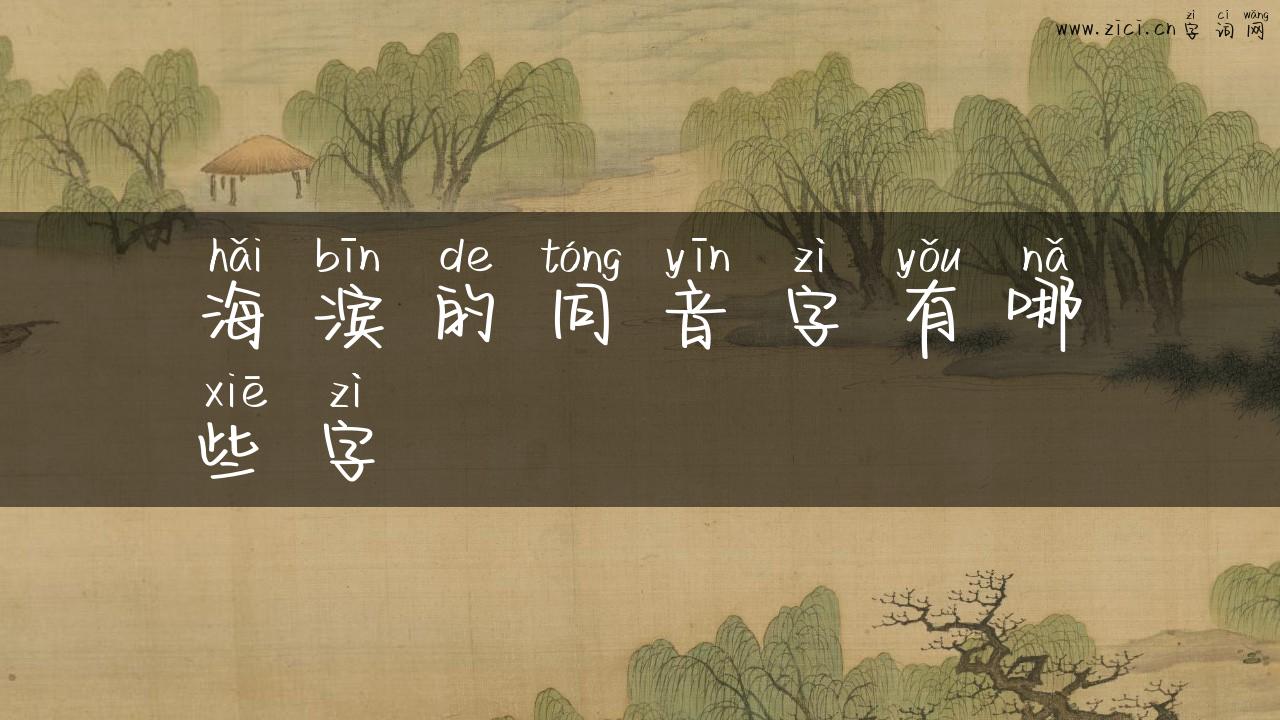 zì cí wǎng
www.zici.cn 字 词 网
hǎi bīn de tóng yīn zì yǒu nǎ
海 滨 的 同 音 字 有 哪
xiē zì
些 字